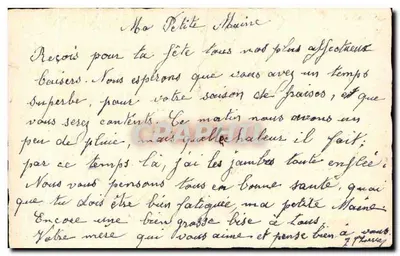 Ma Petite Maine
Reçois pour ta fête tous nos plus affectueux
baisers. Nous espérons que vous avez un temps
superbe, pour votre saison de fraises, et que
vous serez contents. Ce matin nous avons un
peu de pluie, mais quelle chaleur il fait,
par ce temps là, j'ai les jambes toute enflée.
Nous vous pensons tous en bonne santé, quoi
que tu dois être bien fatiguée ma petite Maine
Encore une bien grosse bise à tous.
Votre mère qui vous aime et pense bien à vous